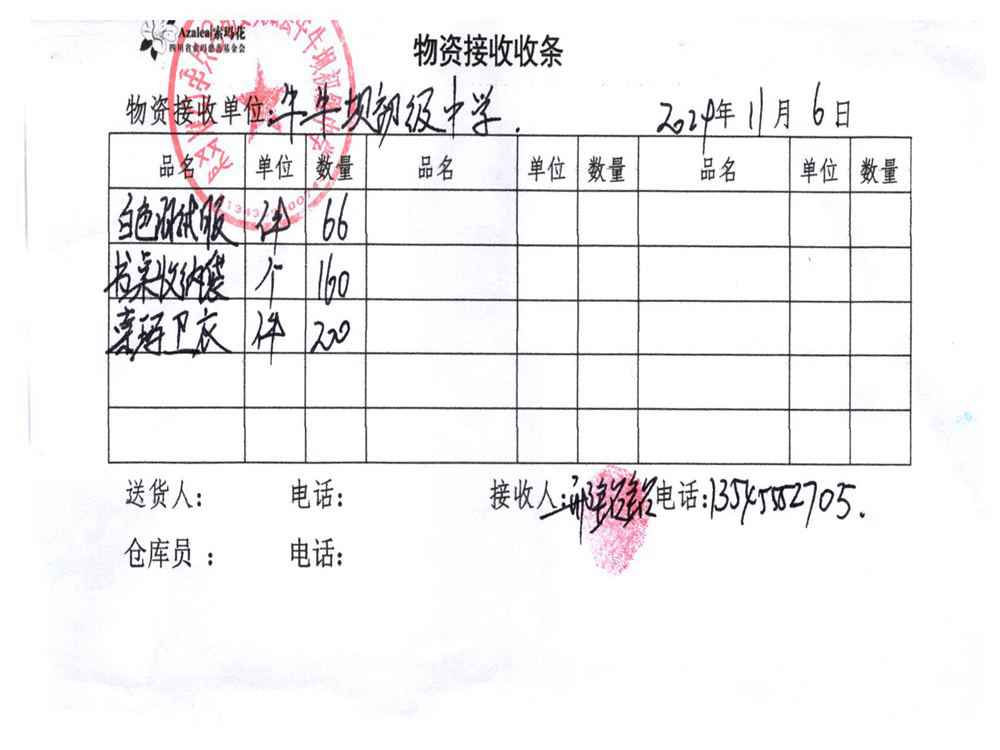 Azalea 索玛花
四川省索玛慈善基金会
物资接收收条
物资接收单位:牛牛坝初级中学.
2024年11月6日
品名 单位 数量 品名 单位 数量 品名 单位 数量
白色测试服 件 66
书桌收纳袋 个 160
索玛卫衣 件 200
送货人: 电话: 接收人: 电话:13545552705.
仓库员: 电话: